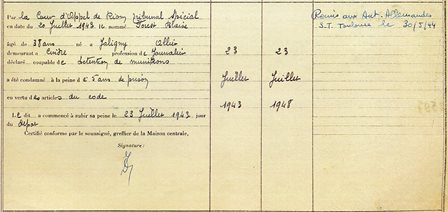 Par la Cour d'Appel de Riom Tribunal Spécial
en date du 20 Juillet 1943 le nommé
âgé de 38 ans né à Jaligny Allier
demeurant à profession de Journalier
déclaré coupable de Détention de munitions
a été condamné à la peine de 5 ans de prison
en vertu des articles du code
Le dit a commencé à subir sa peine le 23 Juillet 1943, jour
du dépôt
Certifié conforme par le soussigné, greffier de la Maison centrale,
Signature :
23
Juillet
1943
23
Juillet
1948
Remis aux Aut. Allemandes
S.T. Toulouse le 30/5/44